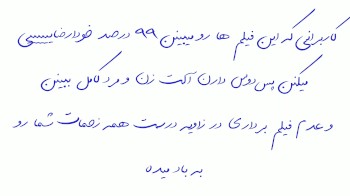 کاربرانی که این فیلم ها رو میبینن ۹۹ درصد خودارضایییییی
میکنن پس دوس دارن آلت زن و مرد کامل ببینن
و عدم فیلم برداری در زاویه درست همه زحمات شما رو
به باد میده